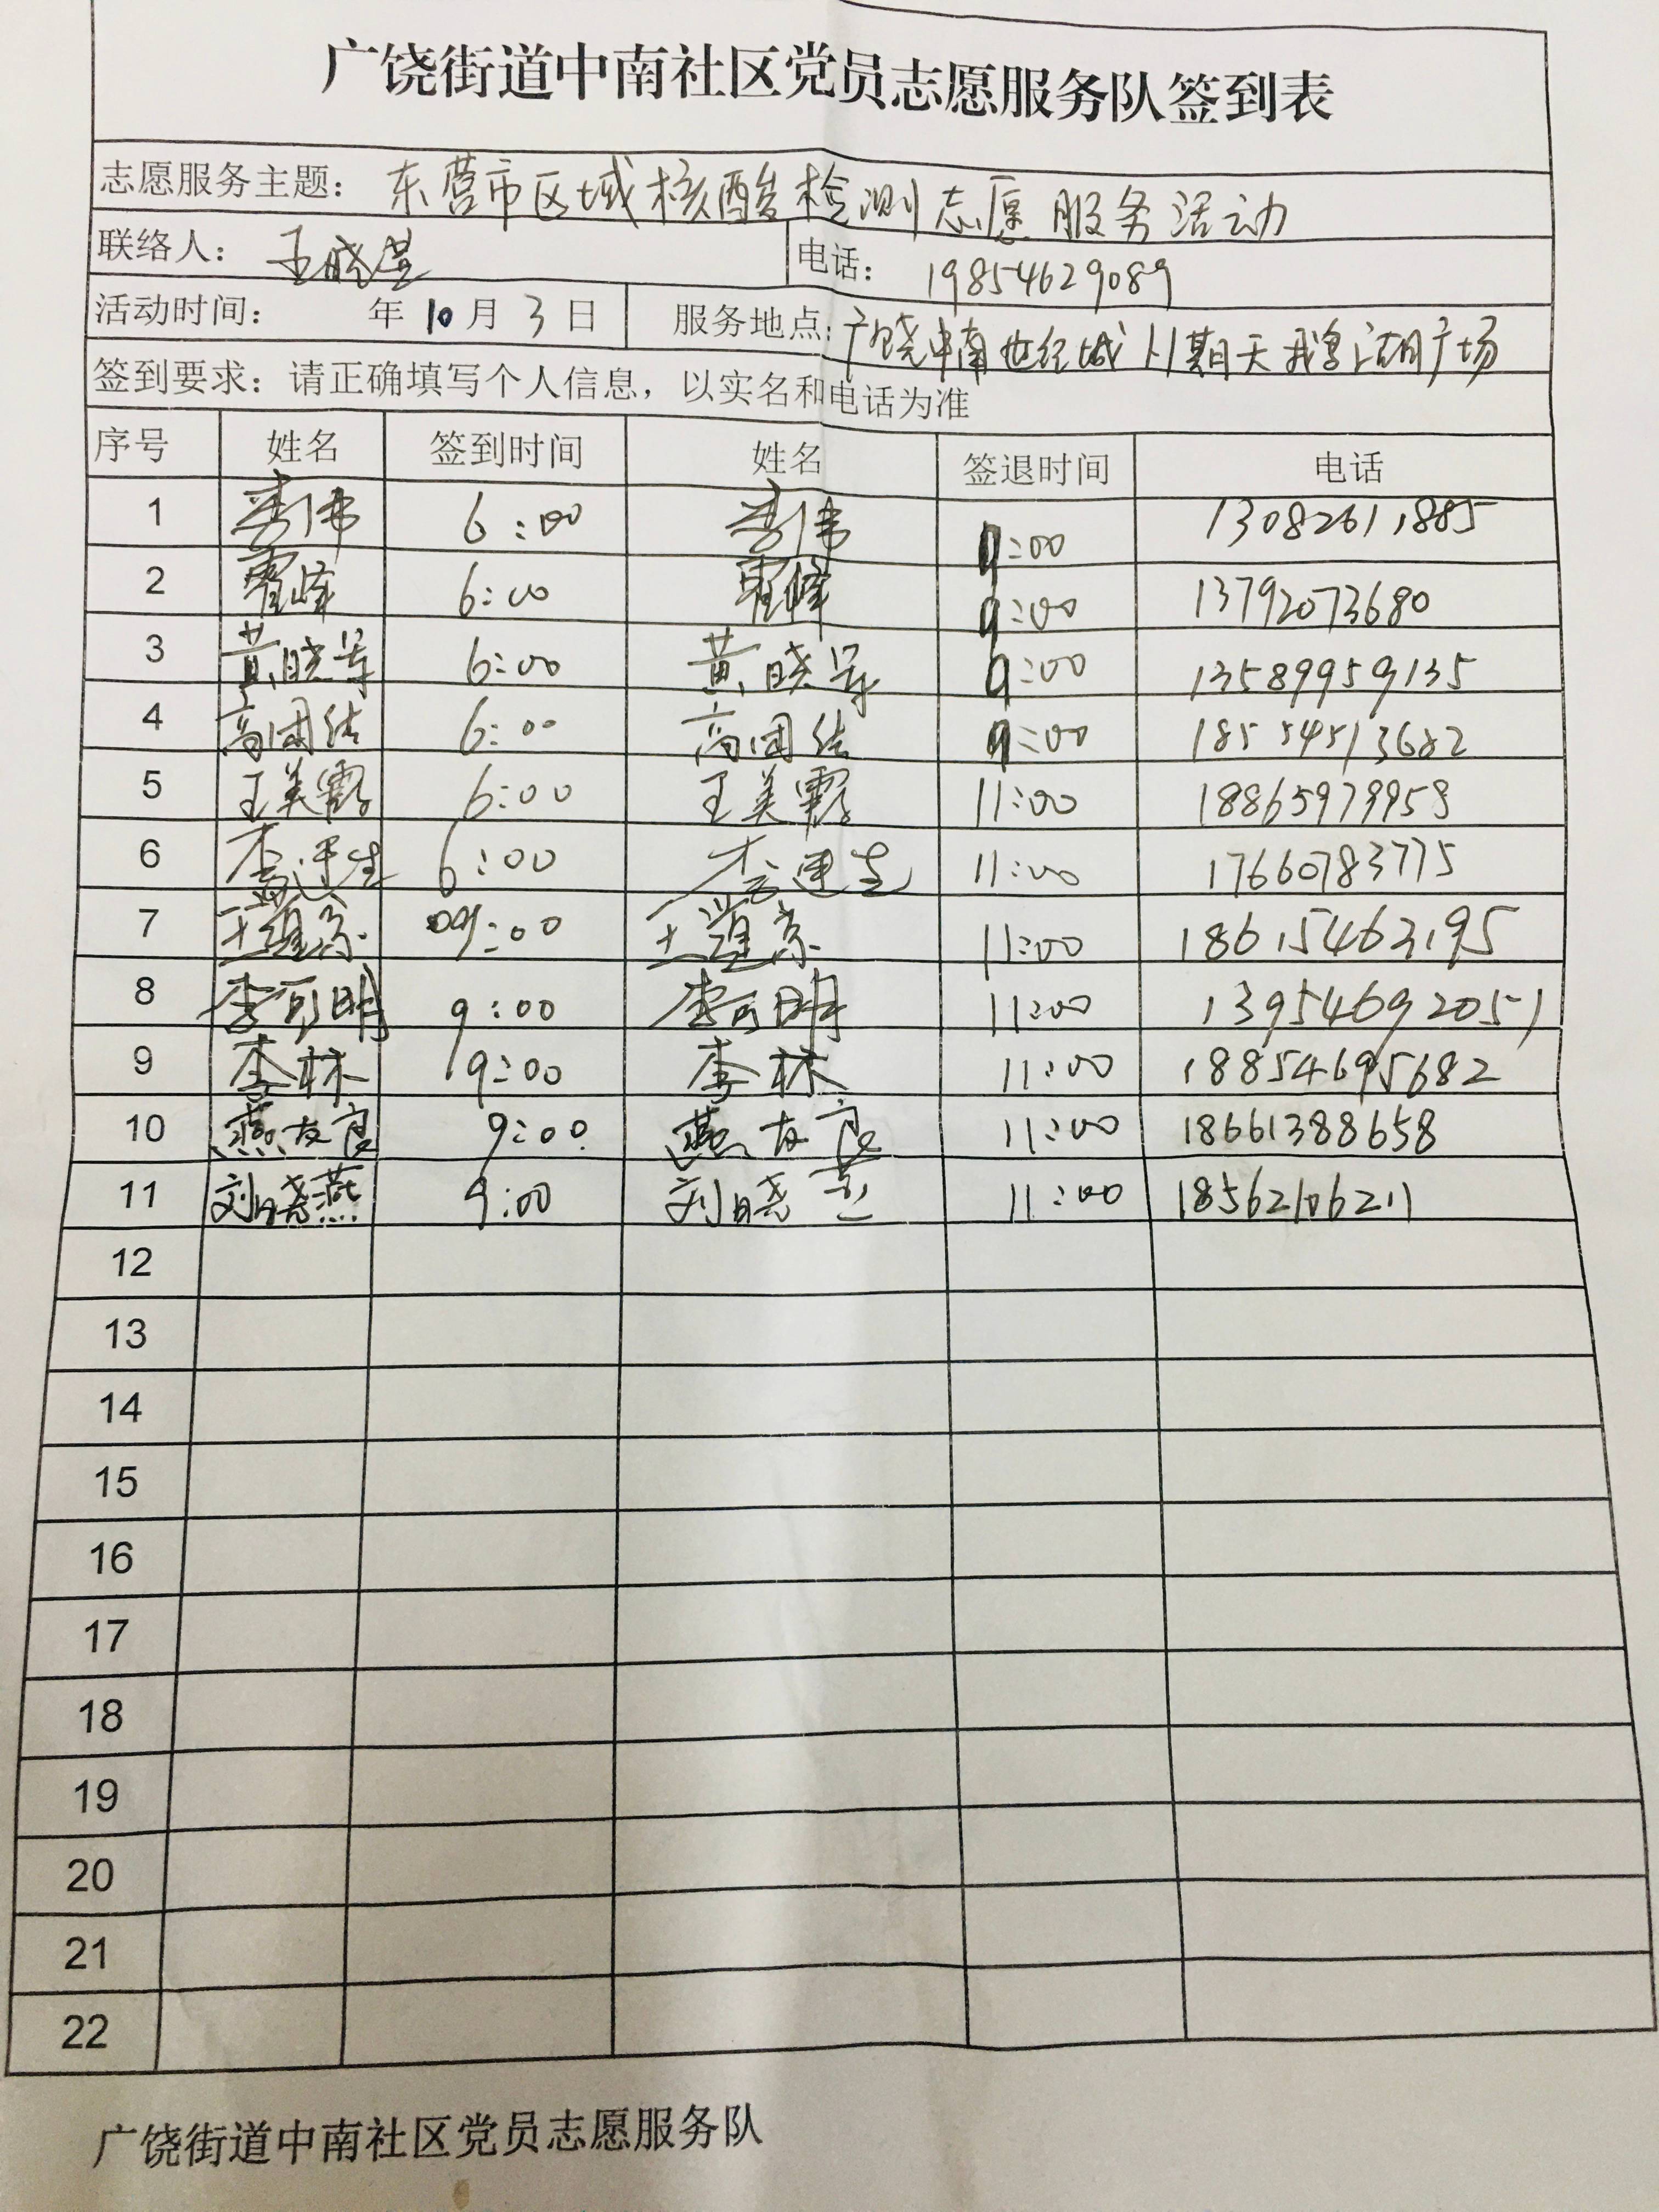 广饶街道中南社区党员志愿服务队签到表
志愿服务主题：东营市区域核酸检测志愿服务活动
联络人：王晓莹 电话：19854629089
活动时间： 年10月3日 服务地点：广饶中南世纪城1期天鹅湖广场
签到要求：请正确填写个人信息，以实名和电话为准
序号 姓名 签到时间 姓名 签退时间 电话
1 李伟 6:00 李伟 9:00 13082611885
2 霍峰 6:00 霍峰 9:00 13792073680
3 黄晓军 6:00 黄晓军 9:00 13589959135
4 高团结 6:00 高团结 9:00 18554513682
5 王美霞 6:00 王美霞 11:00 18865979959
6 李建生 6:00 李建生 11:00 17660783775
7 09:00 11:00 18615463195
8 李可明 9:00 李可明 11:00 13954692051
9 李林 9:00 李林 11:00 18854695682
10 燕友良 9:00 燕友良 11:00 18661388658
11 刘晓燕 9:00 刘晓燕 11:00 18562106211
12
13
14
15
16
17
18
19
20
21
22
广饶街道中南社区党员志愿服务队